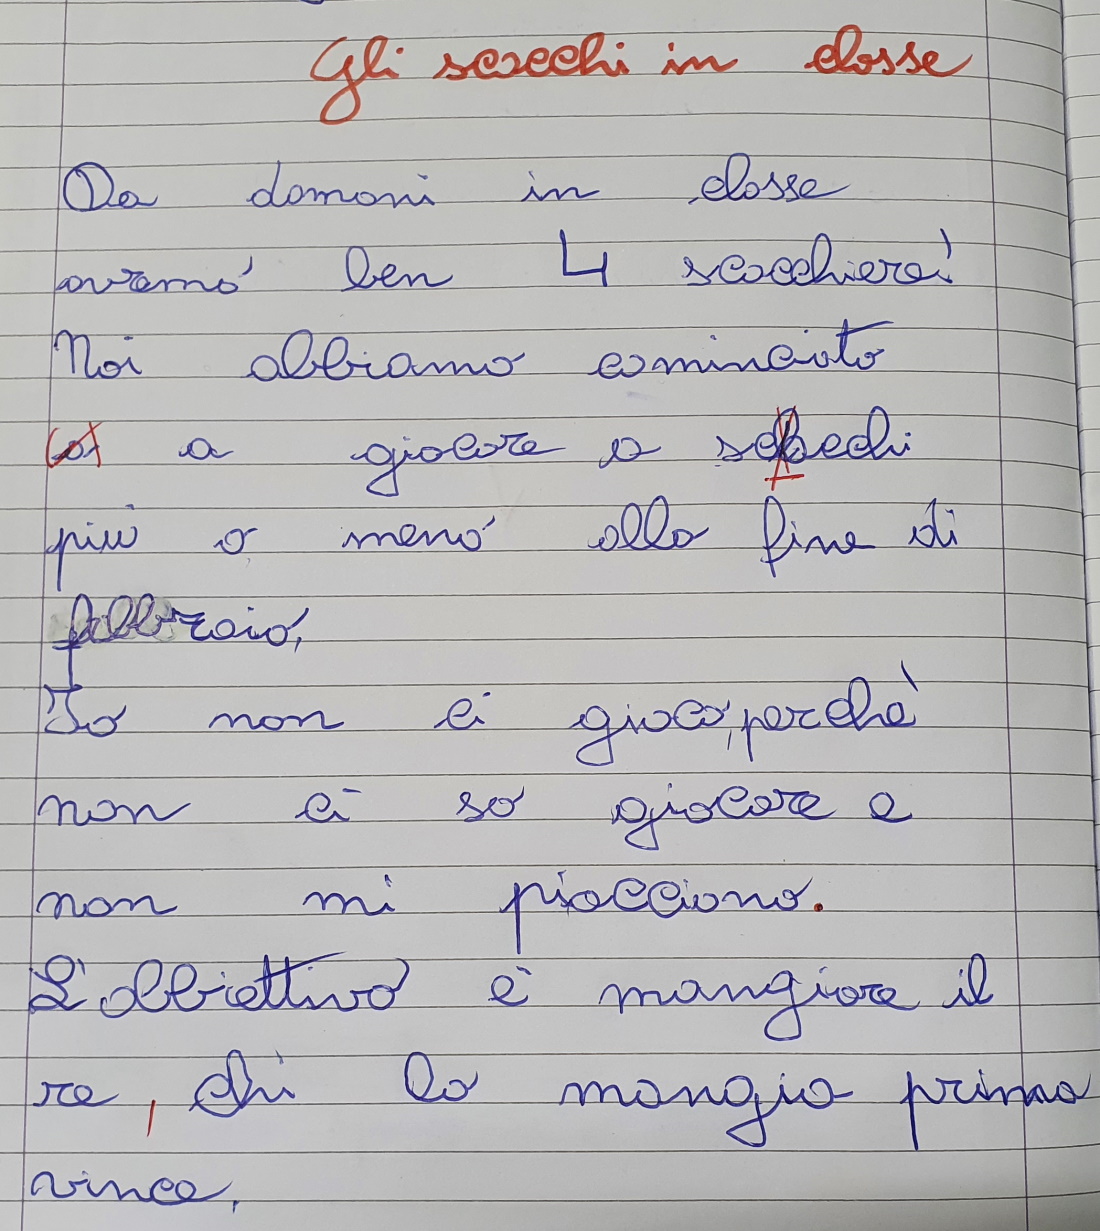 Gli scacchi in classe
Da domani in classe
avremo ben 4 scacchiere!
Noi abbiamo cominciato
a giocare a scacchi
più o meno alla fine di
febbraio,
Io non ci gioco, perchè
non ci so giocare e
non mi piacciono.
L'obbiettivo è mangiare il
re, chi lo mangia prima
vince.